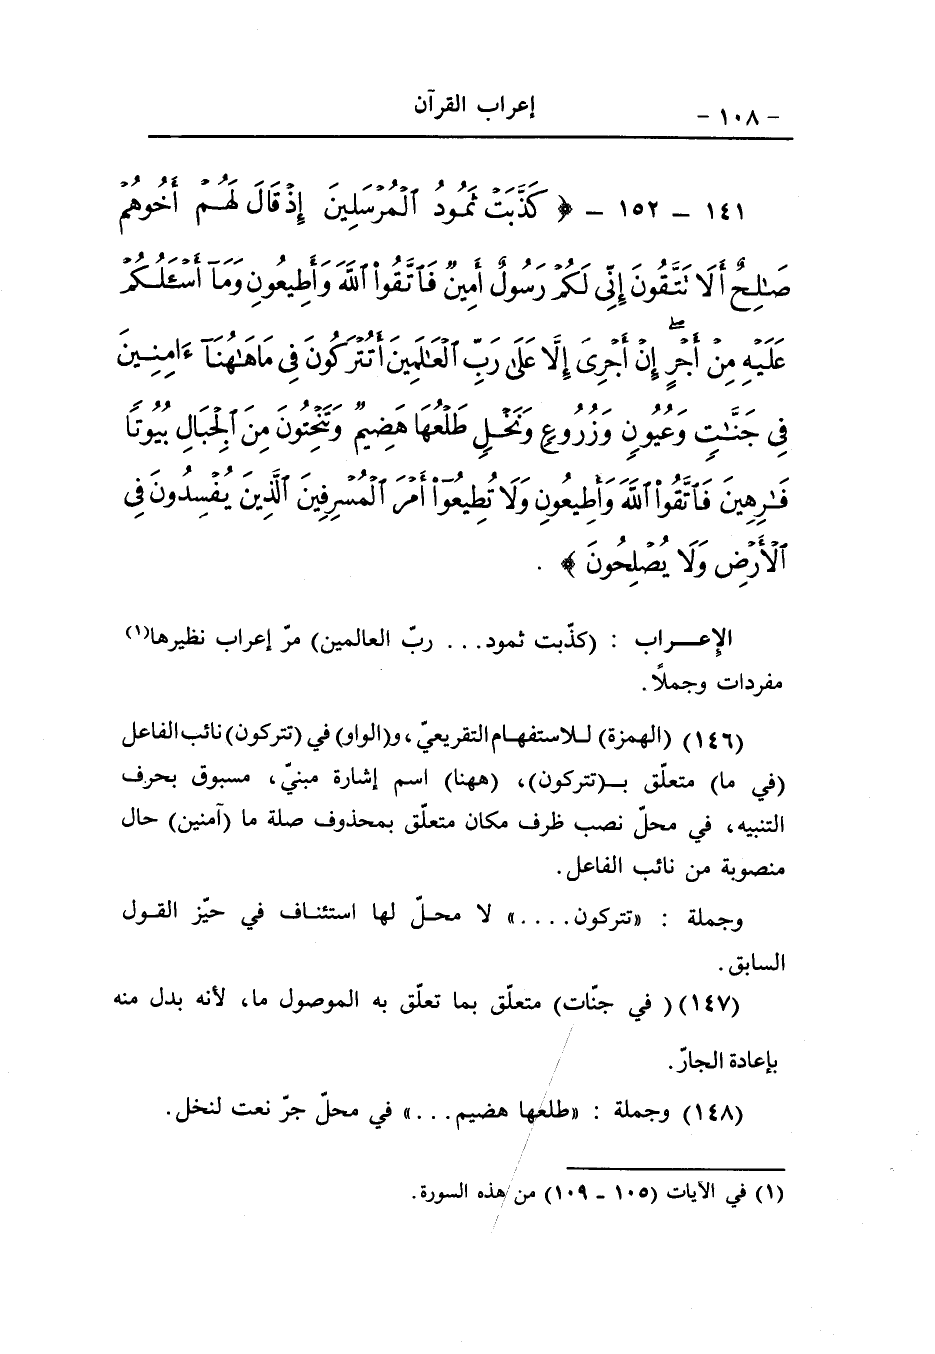 - ١٠٨ - إعراب القرآن
١٤١ - ١٥٢ - ﴿ كَذَّبَتْ ثَمُودُ ٱلْمُرْسَلِينَ إِذْ قَالَ لَهُمْ أَخُوهُمْ
صَـٰلِحٌ أَلَا تَتَّقُونَ إِنِّى لَكُمْ رَسُولٌ أَمِينٌ فَٱتَّقُوا۟ ٱللَّهَ وَأَطِيعُونِ وَمَآ أَسْـَٔلُكُمْ
عَلَيْهِ مِنْ أَجْرٍ ۖ إِنْ أَجْرِىَ إِلَّا عَلَىٰ رَبِّ ٱلْعَـٰلَمِينَ أَتُتْرَكُونَ فِى مَا هَـٰهُنَآ ءَامِنِينَ
فِى جَنَّـٰتٍ وَعُيُونٍ وَزُرُوعٍ وَنَخْلٍ طَلْعُهَا هَضِيمٌ وَتَنْحِتُونَ مِنَ ٱلْجِبَالِ بُيُوتًا
فَـٰرِهِينَ فَٱتَّقُوا۟ ٱللَّهَ وَأَطِيعُونِ وَلَا تُطِيعُوٓا۟ أَمْرَ ٱلْمُسْرِفِينَ ٱلَّذِينَ يُفْسِدُونَ فِى
ٱلْأَرْضِ وَلَا يُصْلِحُونَ ﴾ .
الإعـــراب : (كذّبت ثمود... ربّ العالمين) مرّ إعراب نظيرها(١)
مفردات وجملاً.
(١٤٦) (الهمزة) للاستفهام التقريعيّ، و(الواو) في (تتركون) نائب الفاعل
(في ما) متعلّق بـ(تتركون)، (ههنا) اسم إشارة مبنيّ، مسبوق بحرف
التنبيه، في محلّ نصب ظرف مكان متعلّق بمحذوف صلة ما (آمنين) حال
منصوبة من نائب الفاعل.
وجملة : «تتركون....» لا محلّ لها استئناف في حيّز القول
السابق.
(١٤٧) ( في جنّات) متعلّق بما تعلّق به الموصول ما، لأنه بدل منه
بإعادة الجارّ.
(١٤٨) وجملة : «طلعها هضيم...» في محلّ جرّ نعت لنخل.
(١) في الآيات (١٠٥ - ١٠٩) من هذه السورة.